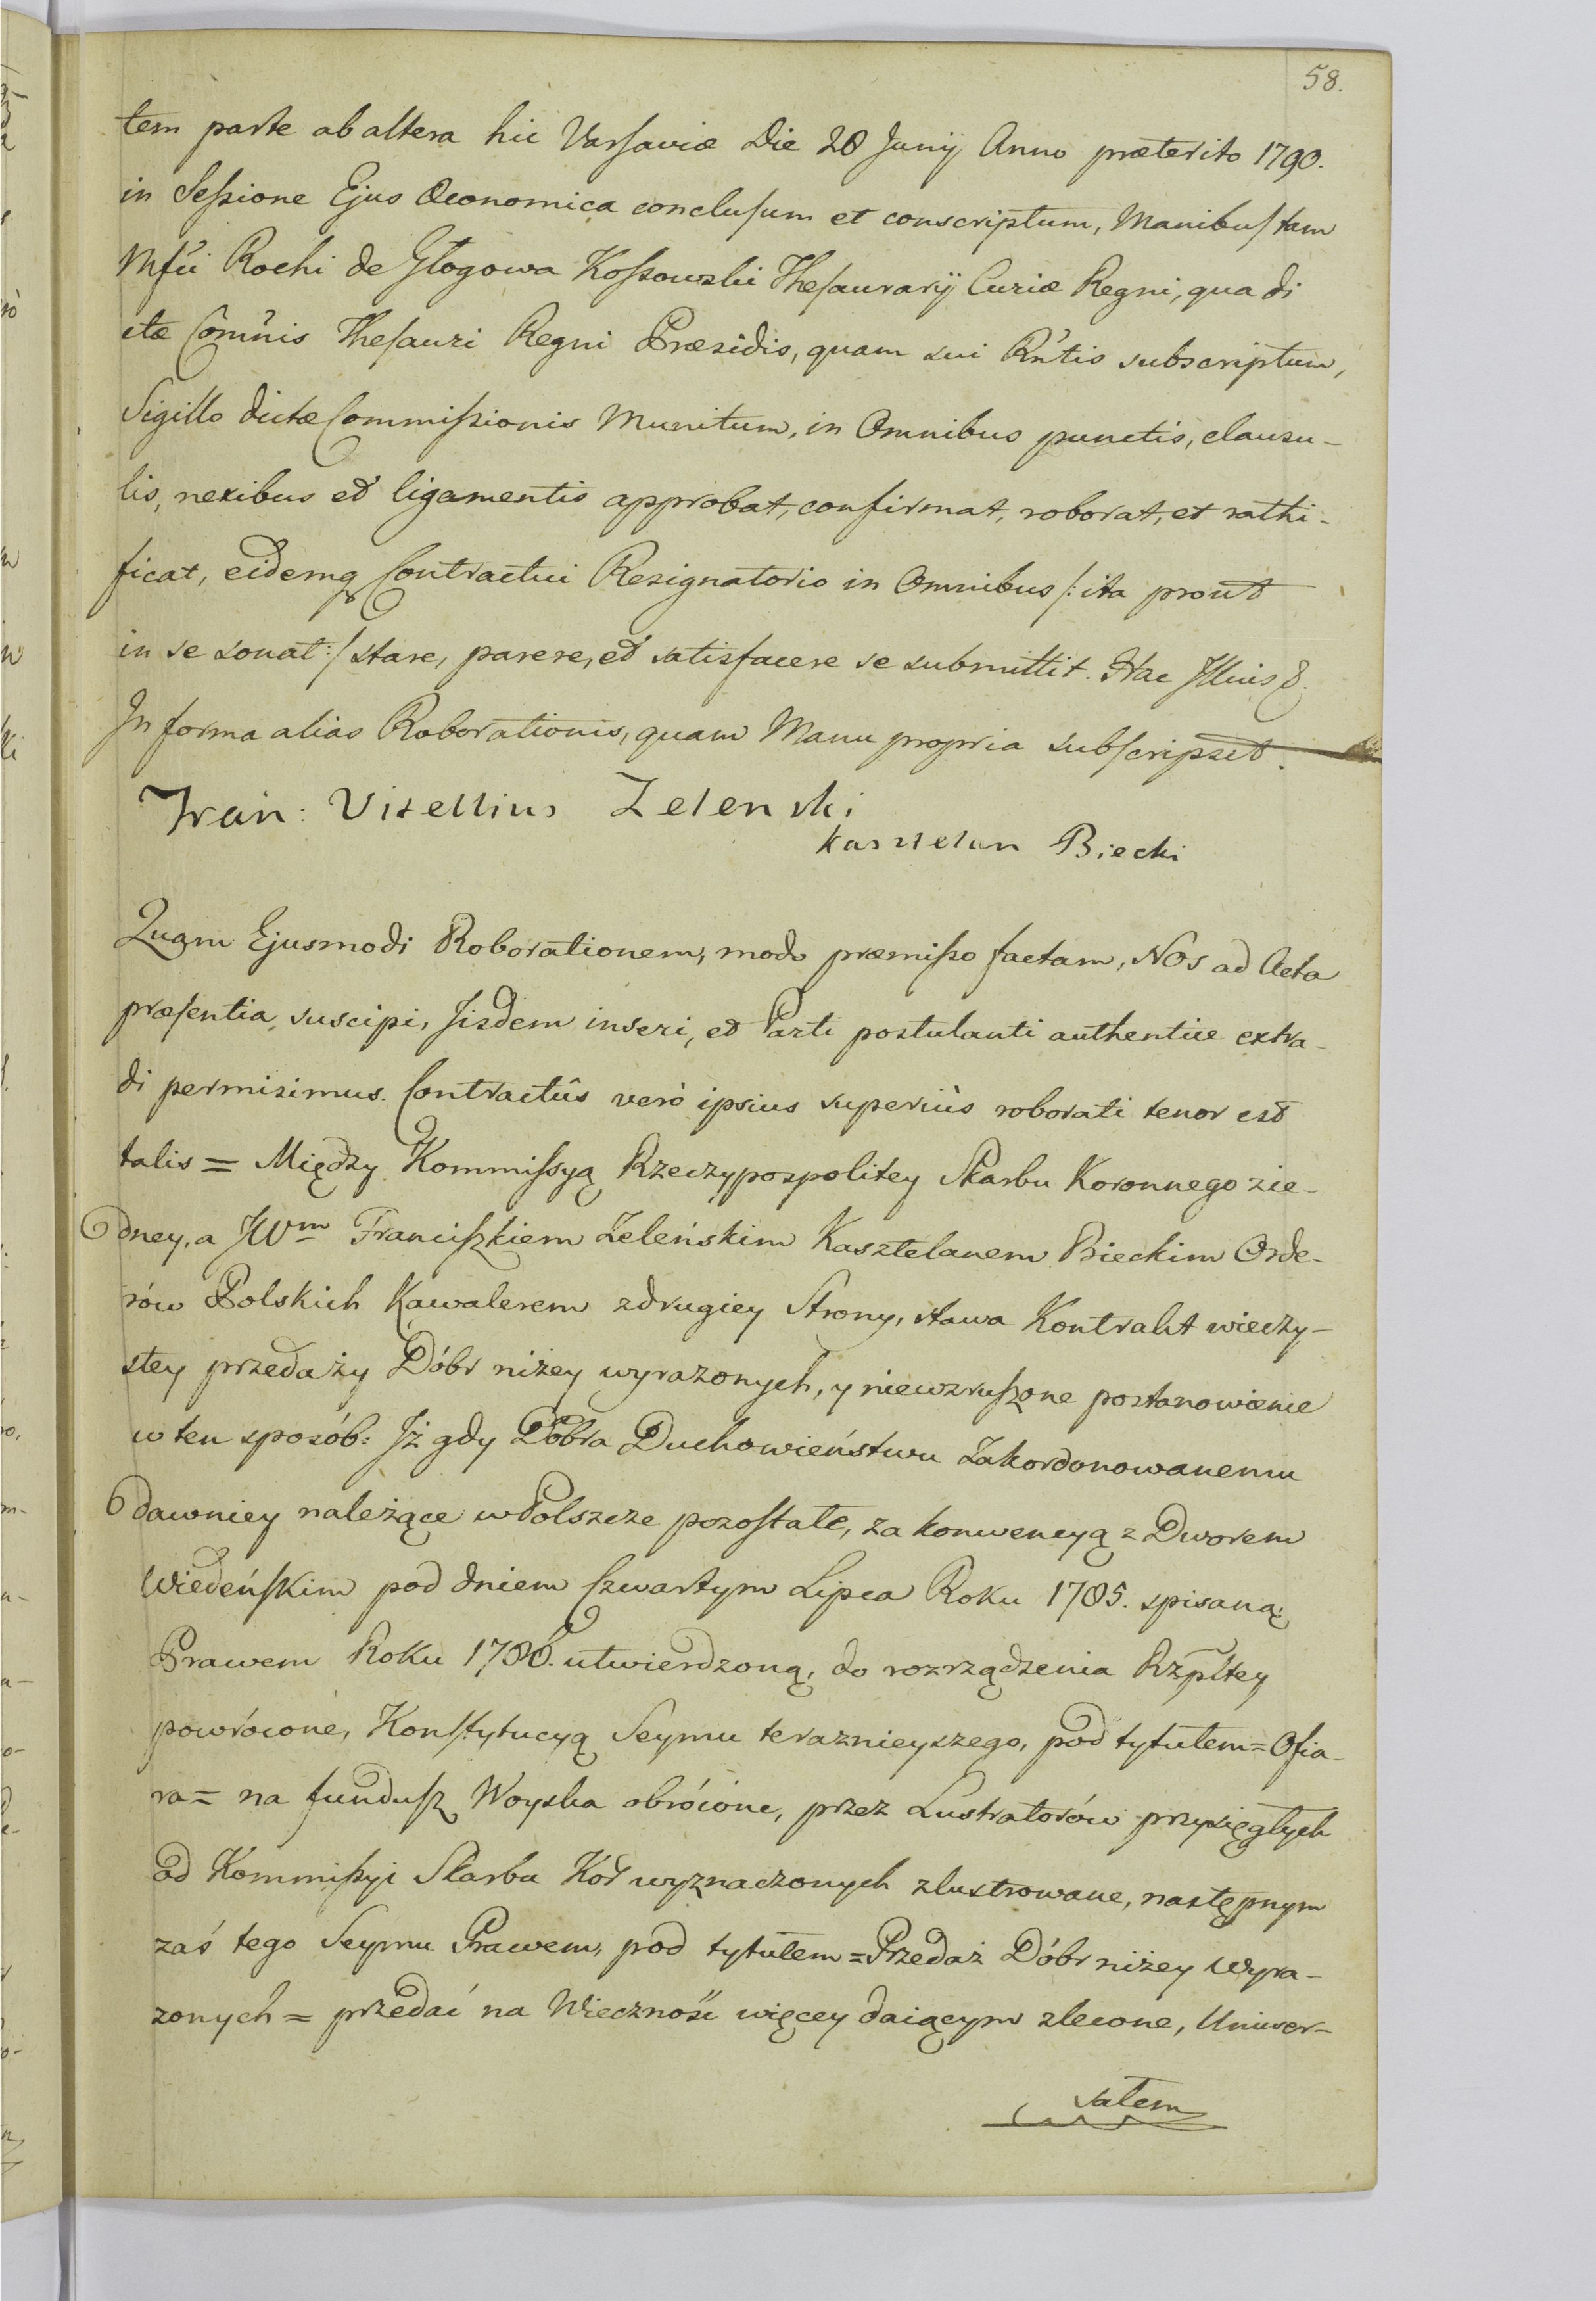 58.
tem parte ab altera hic Varſaviæ Die 28 Junij Anno præterito 1790.
in Seſsione Ejus Œconomica concluſum et conscriptum, Manibuſ tam
Mſui Rochi de Głogowa Koſsowski Theſaurarij Curiæ Regni, qua di
ctæ Com̃nis Theſauri Regni Præsidis, quam sui Rñtis subscriptum,
Sigillo dictæ Commiſsionis Munitum, in Omnibus punctis, clausu-
lis, nexibus et ligamentis approbat, confirmat, roborat, et rathi-
ficat, eidemq Contractui Resignatorio in Omnibus /: ita prout
in se sonat :/ stare, parere, et satisfacere se submittit. Hac
In forma alias Roborationis, quam Manu propria subſcripsit.
Fran: Vitellius Zelenski
Kasztelan Biecki
Quam Ejusmodi Roborationem, modo præmiſso factam, Nos ad Acta
præſentia suscipi, Jisdem inseri, et Parti postulanti authentice extra-
di permisimus. Contractûs verò ipsius superiùs roborati tenor est
talis = Między Kommiſsyą Rzeczypospolitey Skarbu Koronnego zie-
dney, a JWm Franciſzkiem Zeleńskim Kasztelanem Bieckim Orde-
rów Polskich Kawalerem zdrugiey Strony, stawa Kontrakt wieczy-
stey przedaży Dóbr niżey wyrażonych, y niewzruſzone postanowienie
w ten sposób: Jż gdy Dobra Duchowieństwu Zakordonowanemu
dawniey należące w Polszcze pozoſtałe, za konwencyą z Dworem
Wiedeńſkim pod dniem Czwartym Lipca Roku 1785. spisaną
Prawem Roku 1786. utwierdzoną, do rozrządzenia Rzpltey
powrócone, Konſtytucyą Seymu teraznieyszego, pod tytułem = Ofia-
ra = na funduſz Woyska obrócone, przez Lustratorów przysięgłych
od Kommiſsyi Skarbu Kor wyznaczonych zlustrowane, następnym
zaś tego Seymu Prawem, pod tytułem = Przedaż Dóbr niżey wyra-
zonych = przedać na Wieczność więcey daiącym zlecone, Uniwer-
sałem